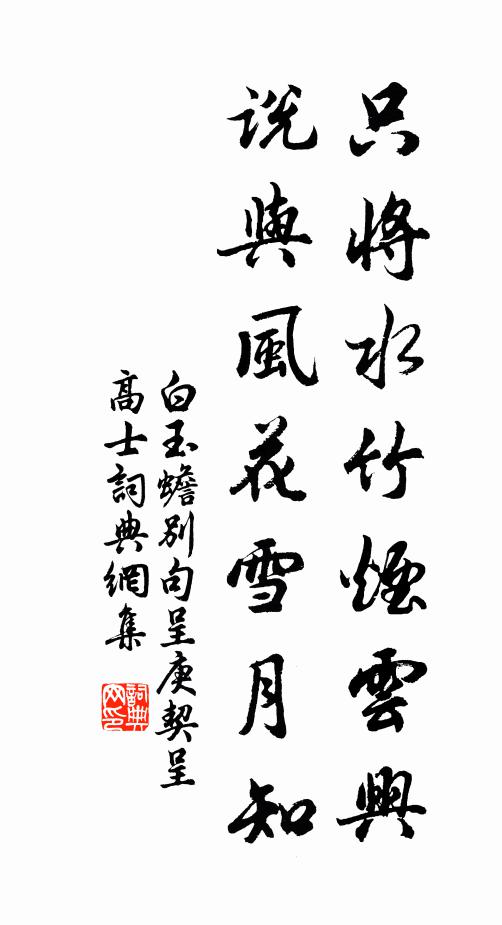 只將水竹煙雲興
說與風花雪月知
白玉蟾別句呈庚契呈
高士詞典網集
詞典
网印